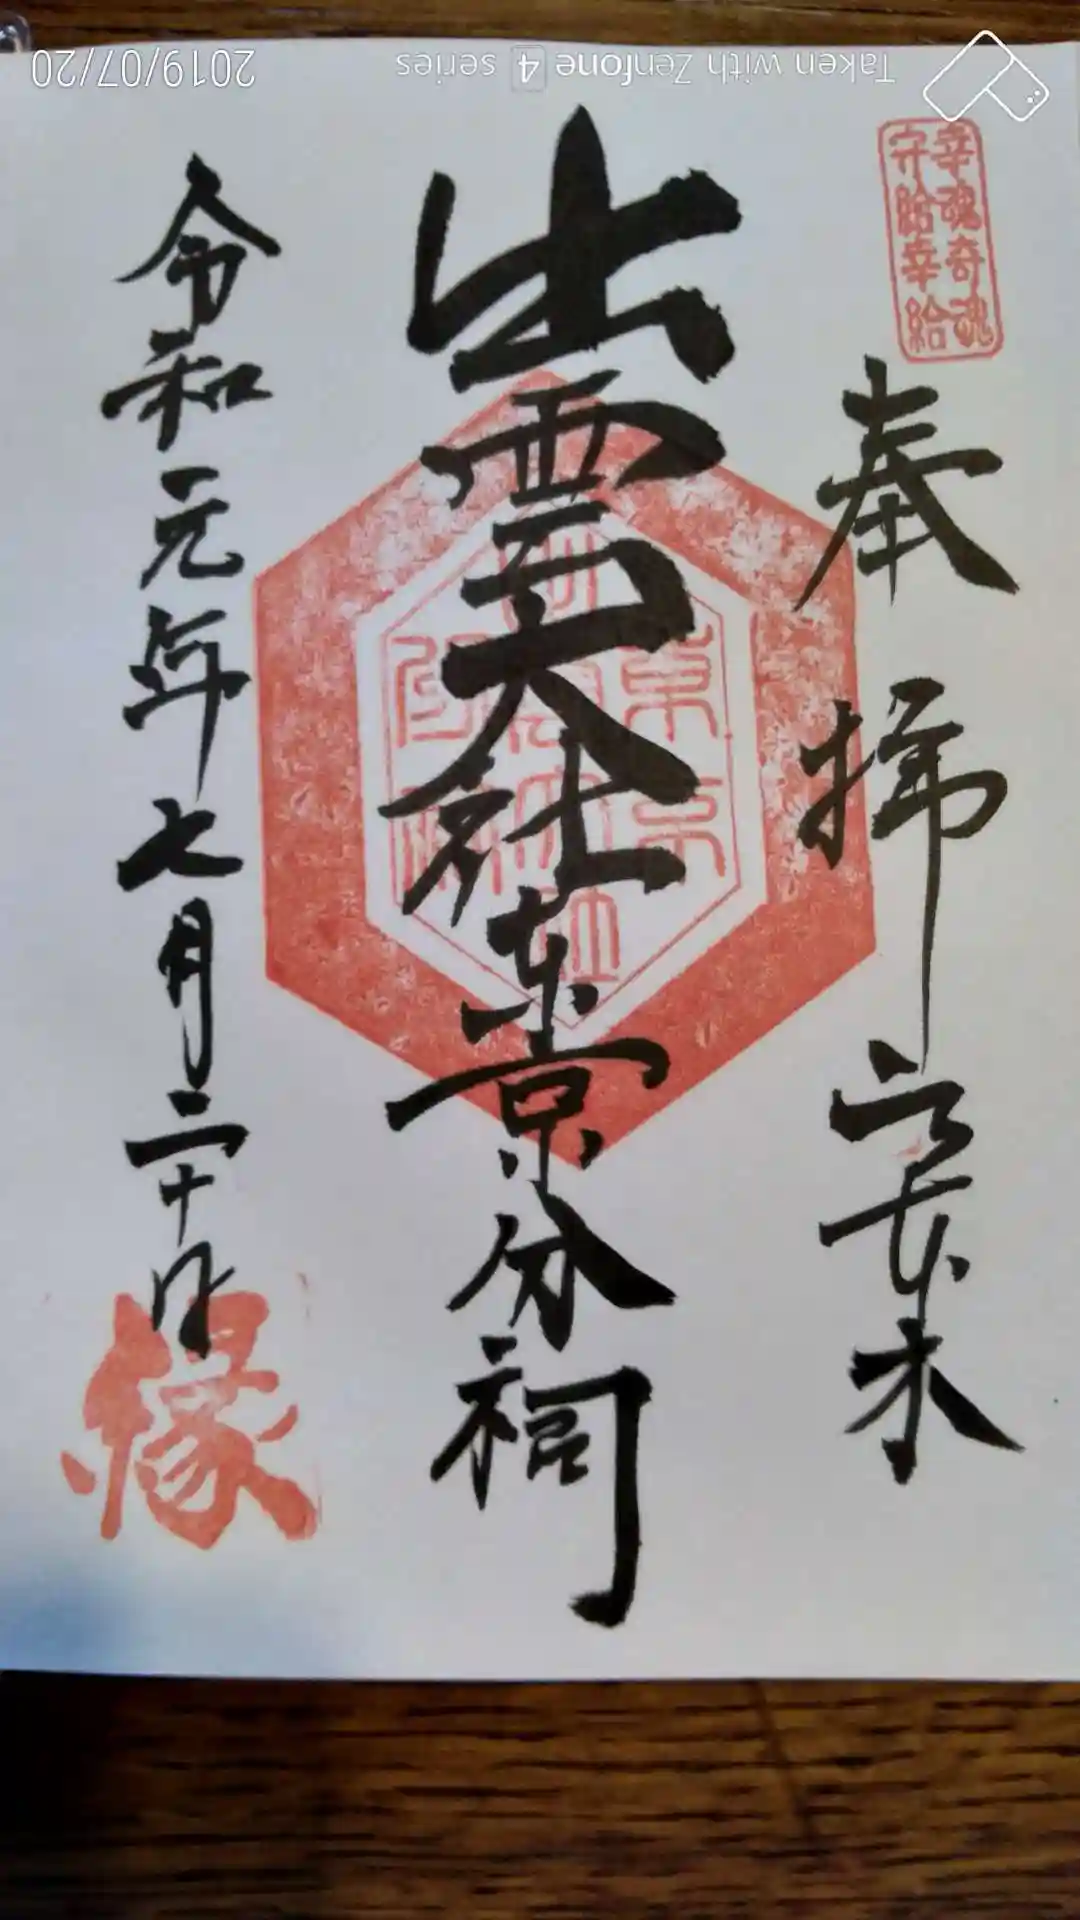 Taken with Zenfone 4 series
2019/07/20
幸魂奇魂
守給幸給
奉拝 六本木
出雲大社東京分祠
令和元年七月二十日
縁